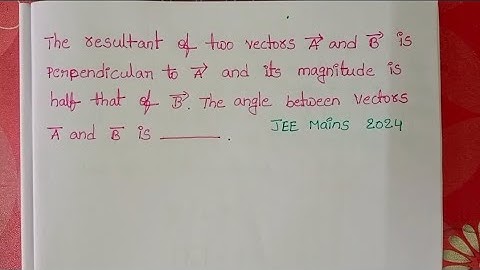 The resultant of two vectors A⃗ and B⃗ is
perpendicular to A⃗ and its magnitude is
half that of B⃗. The angle between vectors
A⃗ and B⃗ is ________.
JEE Mains 2024